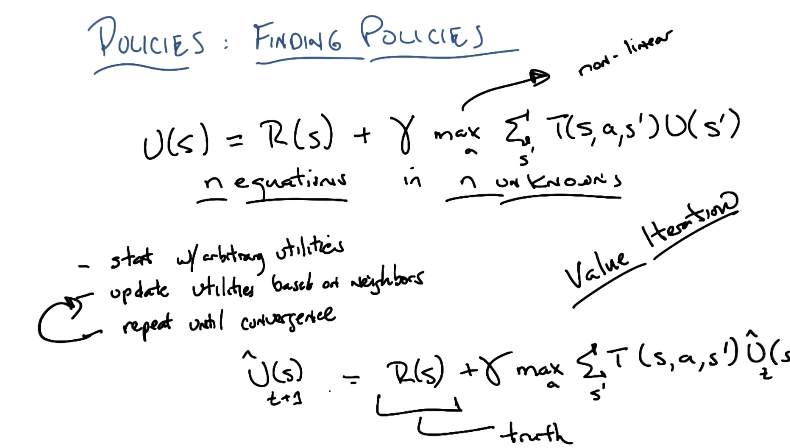 POLICIES : FINDING POLICIES
non-linear
U(s) = R(s) + γ max_a Σ_s' T(s,a,s')U(s')
n equations in n unknowns
Value Iteration
- start w/ arbitrary utilities
- update utilities based on neighbors
- repeat until convergence
Û_{t+1}(s) = R(s) + γ max_a Σ_s' T(s,a,s')Û_t(s
truth